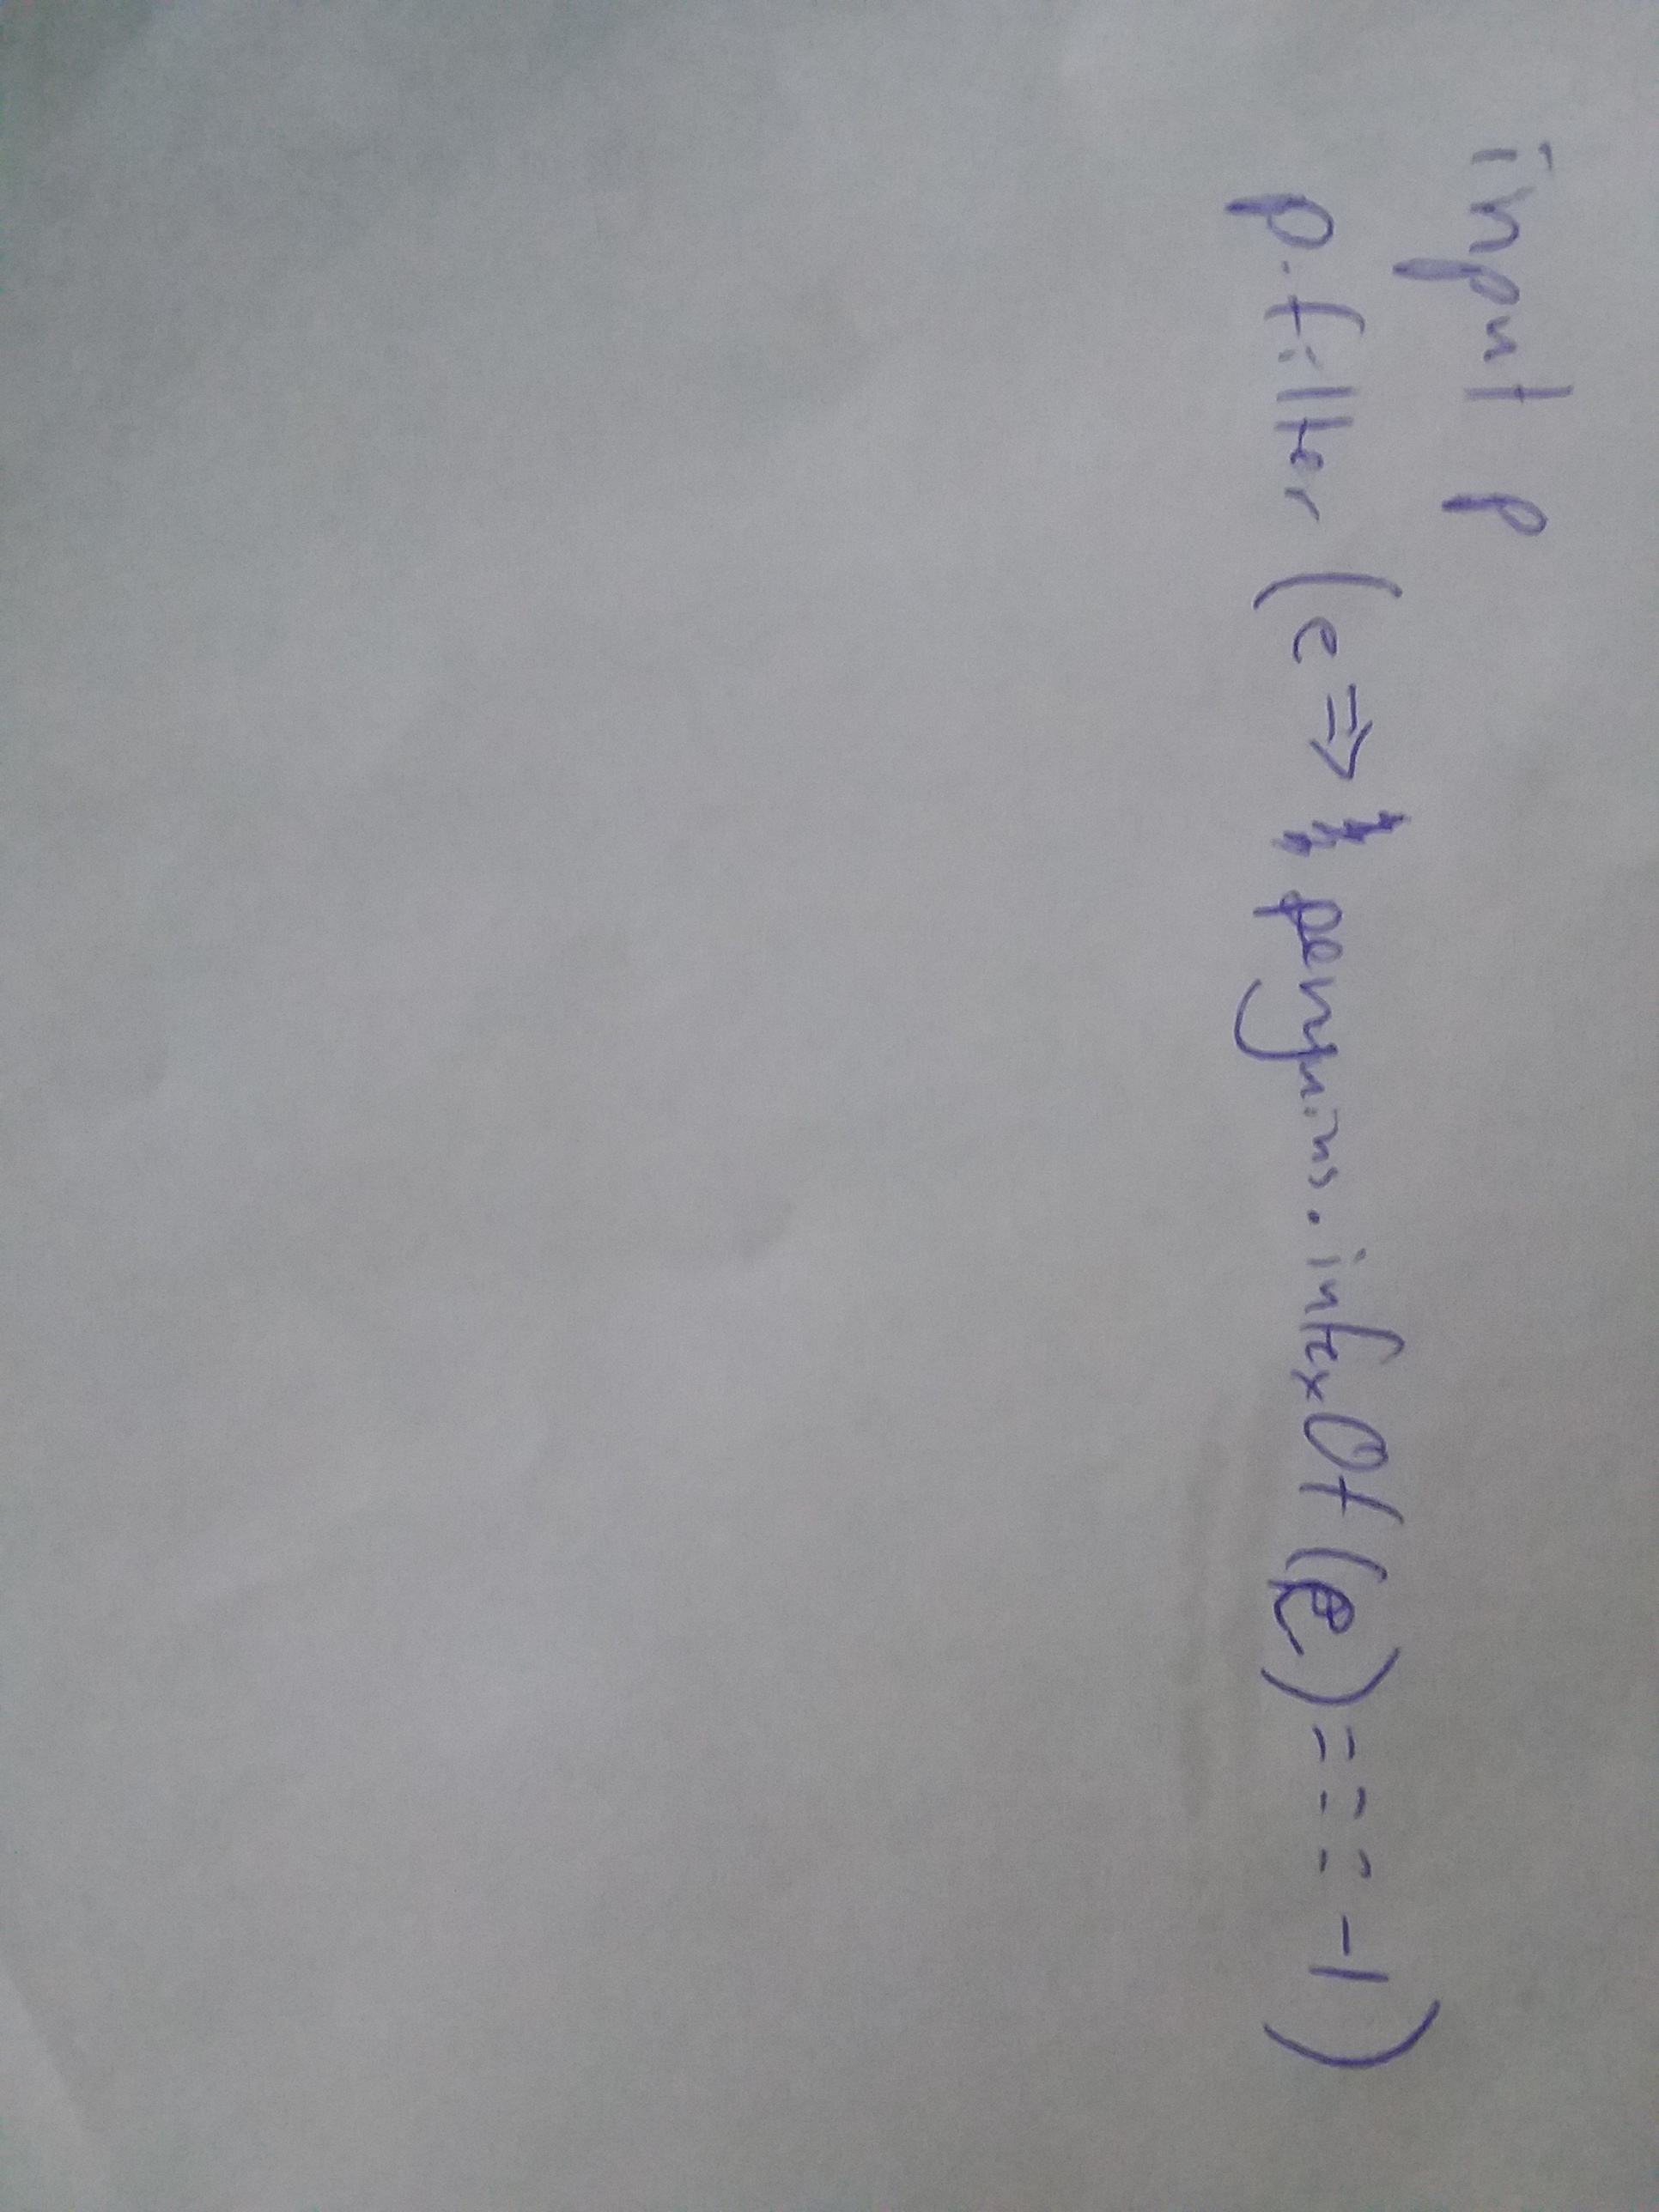 input p
p.filter (e => penguins.indexOf(e) === -1)